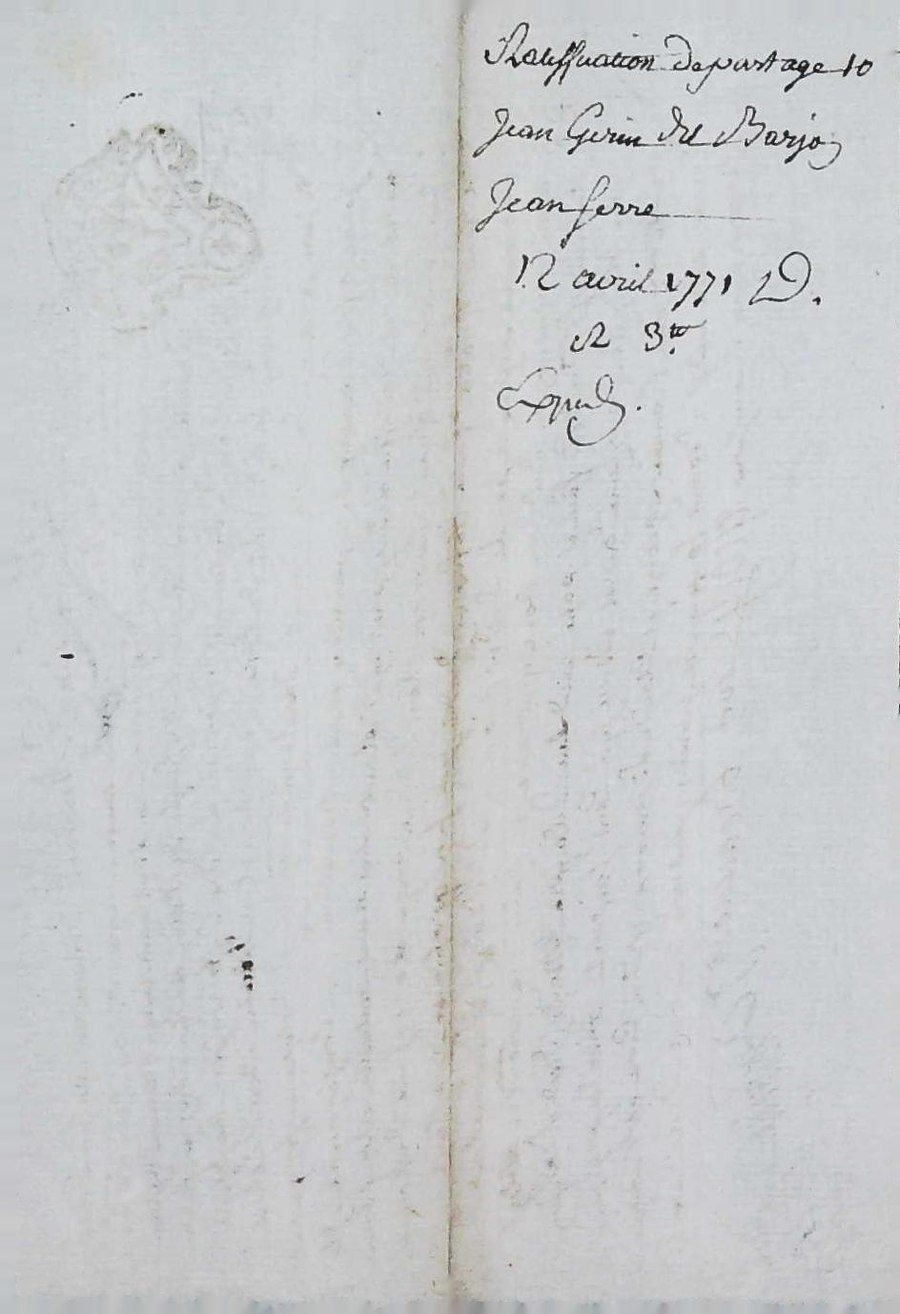 Ratiffication departage 10
Jean Gerin dit Barjo
Jean ferre
12 avril 1771 D.
R 3tt
Expéd.